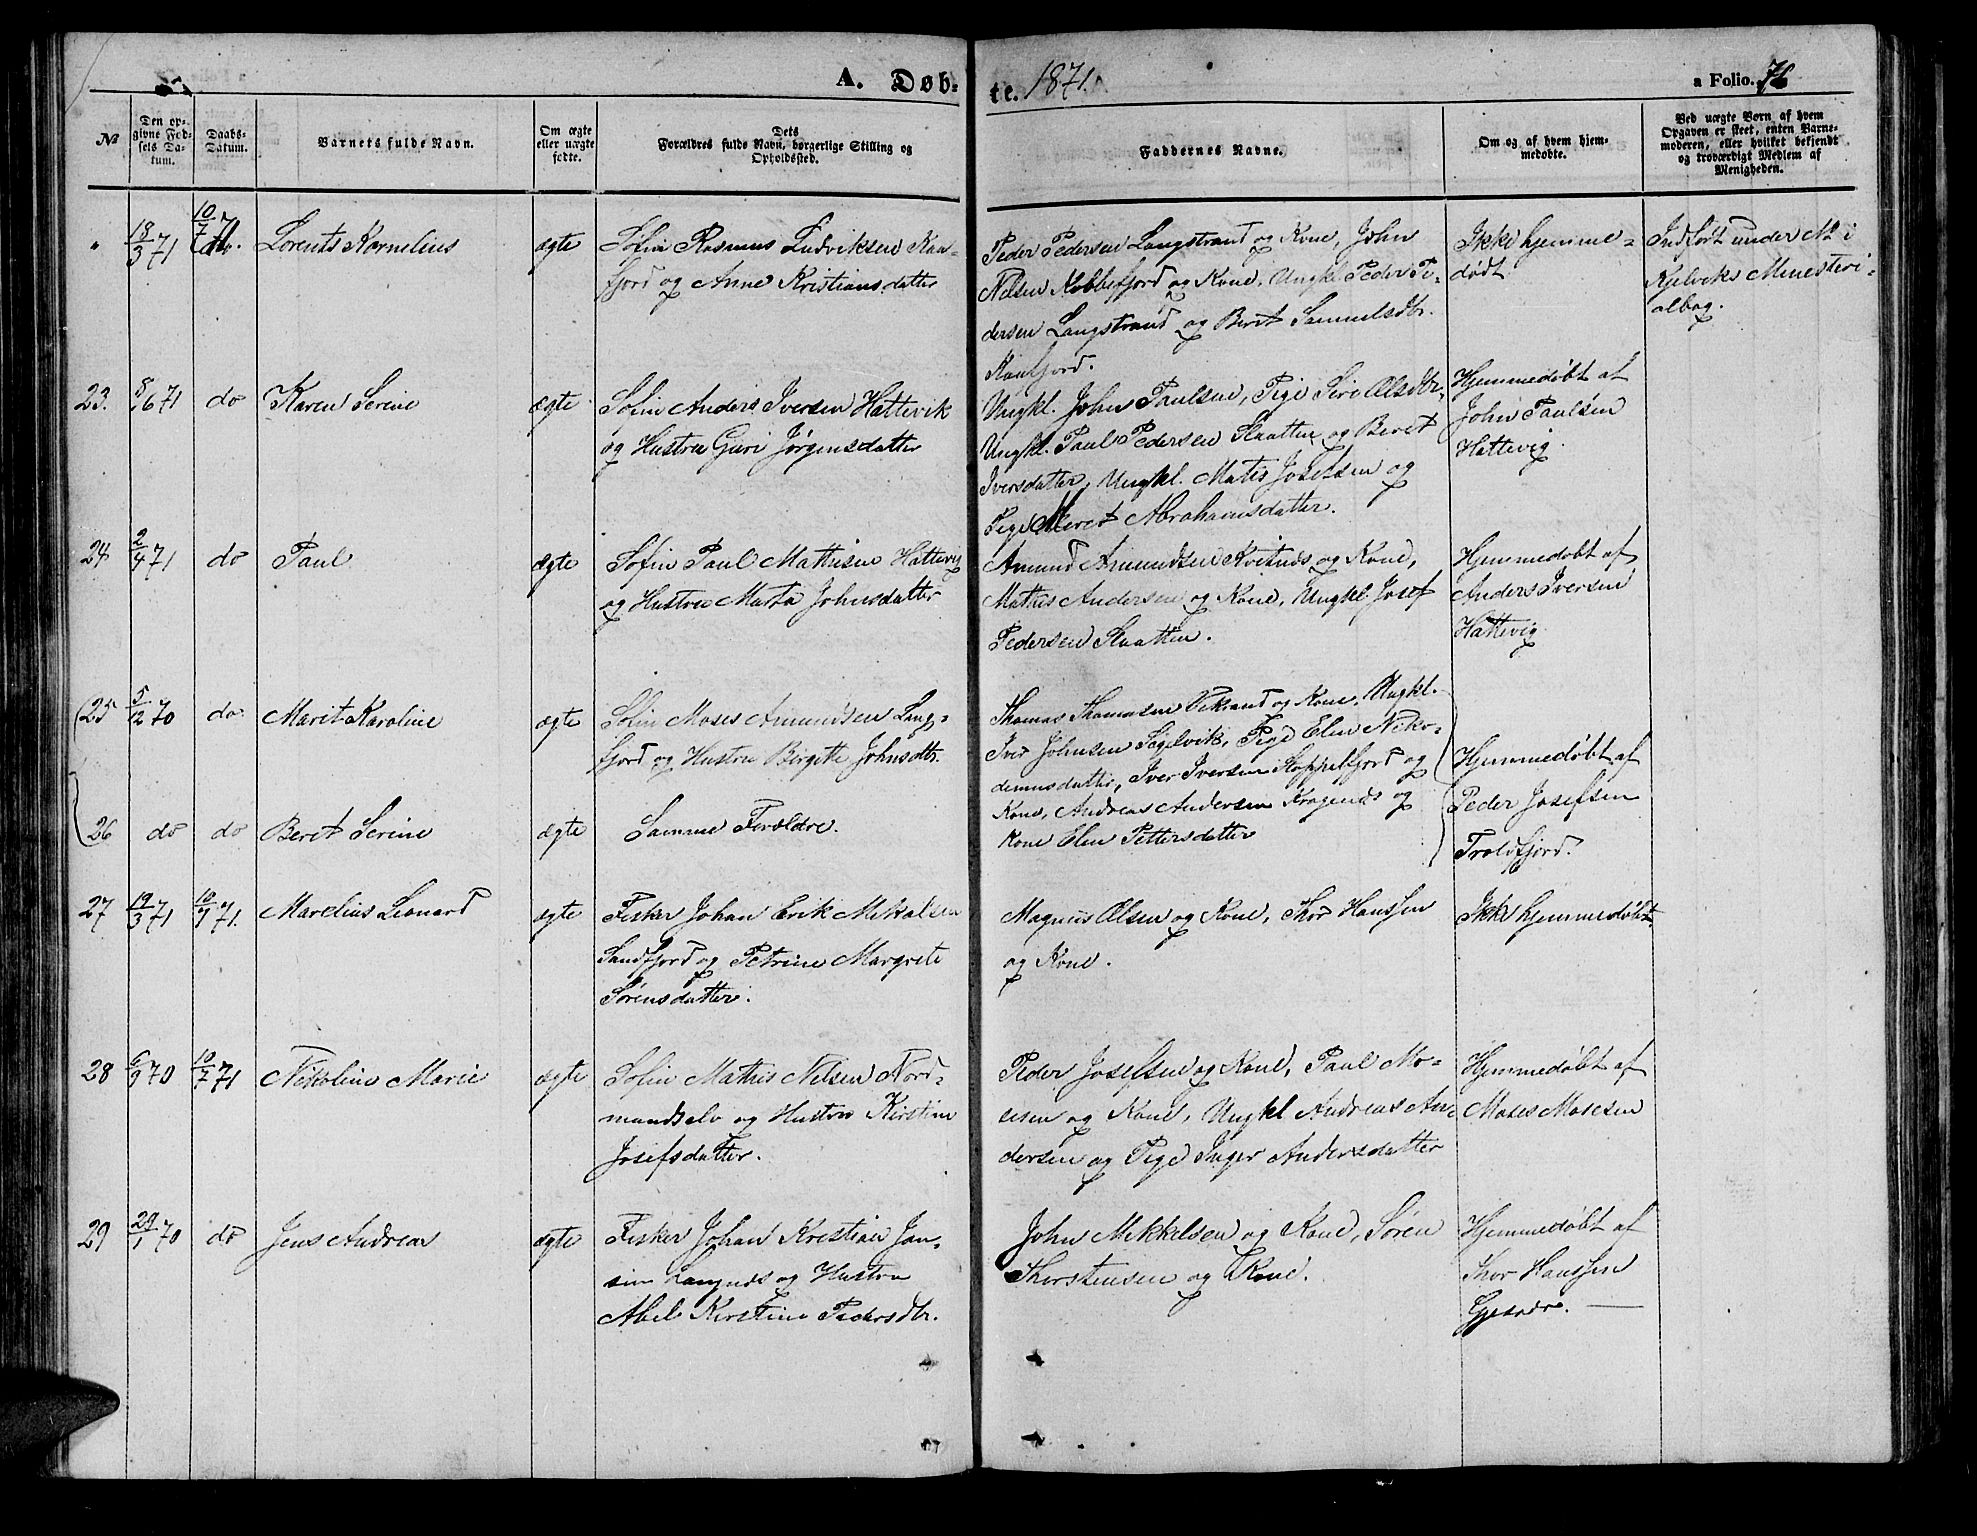 A. Døb-
te. 1871.
a Folio. 76
№
Den op-
givne Fød-
sels Da-
tum.
Daabs-
Datum.
Barnets fulde Navn.
Om ægte
eller uægte
fødte.
Dets
Forældres fulde Navn, borgerlige Stilling og
Opholdssted.
Faddernes Navne.
Om og af hvem hjem-
medøbte.
Ved uægte Børn af hvem
Opgaven er skeet, enten Barne-
moderen, eller hvilket bekjendt
og troværdigt Medlem af
Menigheden.
" 18/3 71 10/7 71. Lorents Kornelius ægte
Sofin Rasmus Ludviksen Kaa-
fjord og Anne Kristiansdatter
Peder Pedersen Langstrand og Kone, John
Nelsen Kobbefjord og Kone, Ungkl Peder Pe-
dersen Langstrand og Beret Samuelsdtr.
Kaafjord.
Ikke hjemme-
dødt
Indført under № i
Kjelviks Ministeri-
albog.
23. 8/6 71 do Karen Serine ægte
Sofin Anders Iversen Hattevik
og Hustru Guri Jørgensdatter
Ungkl. John Paulsen, Pige Siri Olsdtr,
Ungkl. Paul Pedersen Slaatten og Beret
Iversdatter, Ungkl. Matis Josefsen og
Pige Meret Abrahamsdatter.
Hjemmedøbt af
John Paulsen
Hattevig.
24 2/4 71 do Paul ægte
Sofin Paul Mathisen Hattevig
og Hustru Marta Johnsdatter
Amund Amundsen Kvitnæs og Kone,
Mathis Andersen og Kone, Ungkl Josef
Pedersen Slaatten.
Hjemmedøbt af
Anders Iversen
Hattevig.
25 5/12 70 do Marit Karoline ægte
Sofin Moses Amundsen Lang-
fjord og Hustru Birgitte Johnsdtr.
Thomas Thomasen Vikrand og Kone, Ungkl.
Iver Johnsen Sigelvik, Pige Elen Niko-
demusdatter, Iver Iversen Skoppelfjord og
Kone, Andreas Andersen Kragenæs og
Kone Elen Pettersdatter
Hjemmedøbt af
Peder Josefsen
Troldfjord.
26 do do Beret Serine ægte Samme Forældre.
27 19/3 71 10/7 71. Marelius Leonard ægte
Fisker Johan Erik Mikalsen
Sandfjord og Petrine Margrete
Sørensdatter.
Magnus Olsen og Kone, Thor Hanssen
og Kone.
Ikke hjemmedøbt.
28 6/9 70 10/7 71 Nikoline Marie ægte
Sofin Mathis Nilsen Nord-
mandselv og Hustru Kirstine
Josefsdatter.
Peder Josefsen og Kone, Paul Mo-
sesen og Kone, Ungkl Andreas An-
dersen og Pige Inger Andersdatter
Hjemmedøbt af
Moses Mosesen
29 29/1 70 do Jens Andreas ægte
Fisker Johan Kristian Jan-
sen Langnæs og Hustru
Abel Kirstine Pedersdtr.
John Mikkelsen og Kone, Søren
Thorstensen og Kone.
Hjemmedøbt af
Thor Hanssen
Gjesvær.